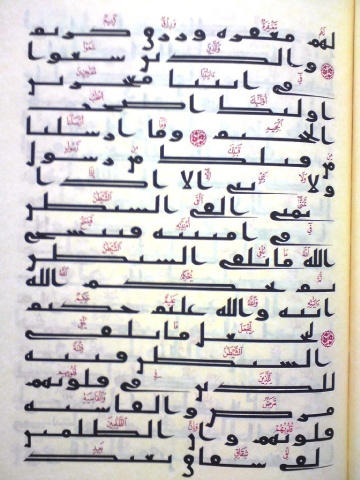 لهم مغفره ورزق كريم
والذين سعوا
في ايتنا معجزين
اولئك اصحب
الجحيم وما ارسلنا
من قبلك من رسول
ولا نبي الا اذا
تمنى القى الشيطن
في امنيته فينسخ
الله ما يلقي الشيطن
ثم يحكم الله
ايته والله عليم حكيم
ليجعل ما يلقي
الشيطن فتنه
للذين في قلوبهم
مرض والقاسيه
قلوبهم وان الظلمين
لفي شقاق بعيد